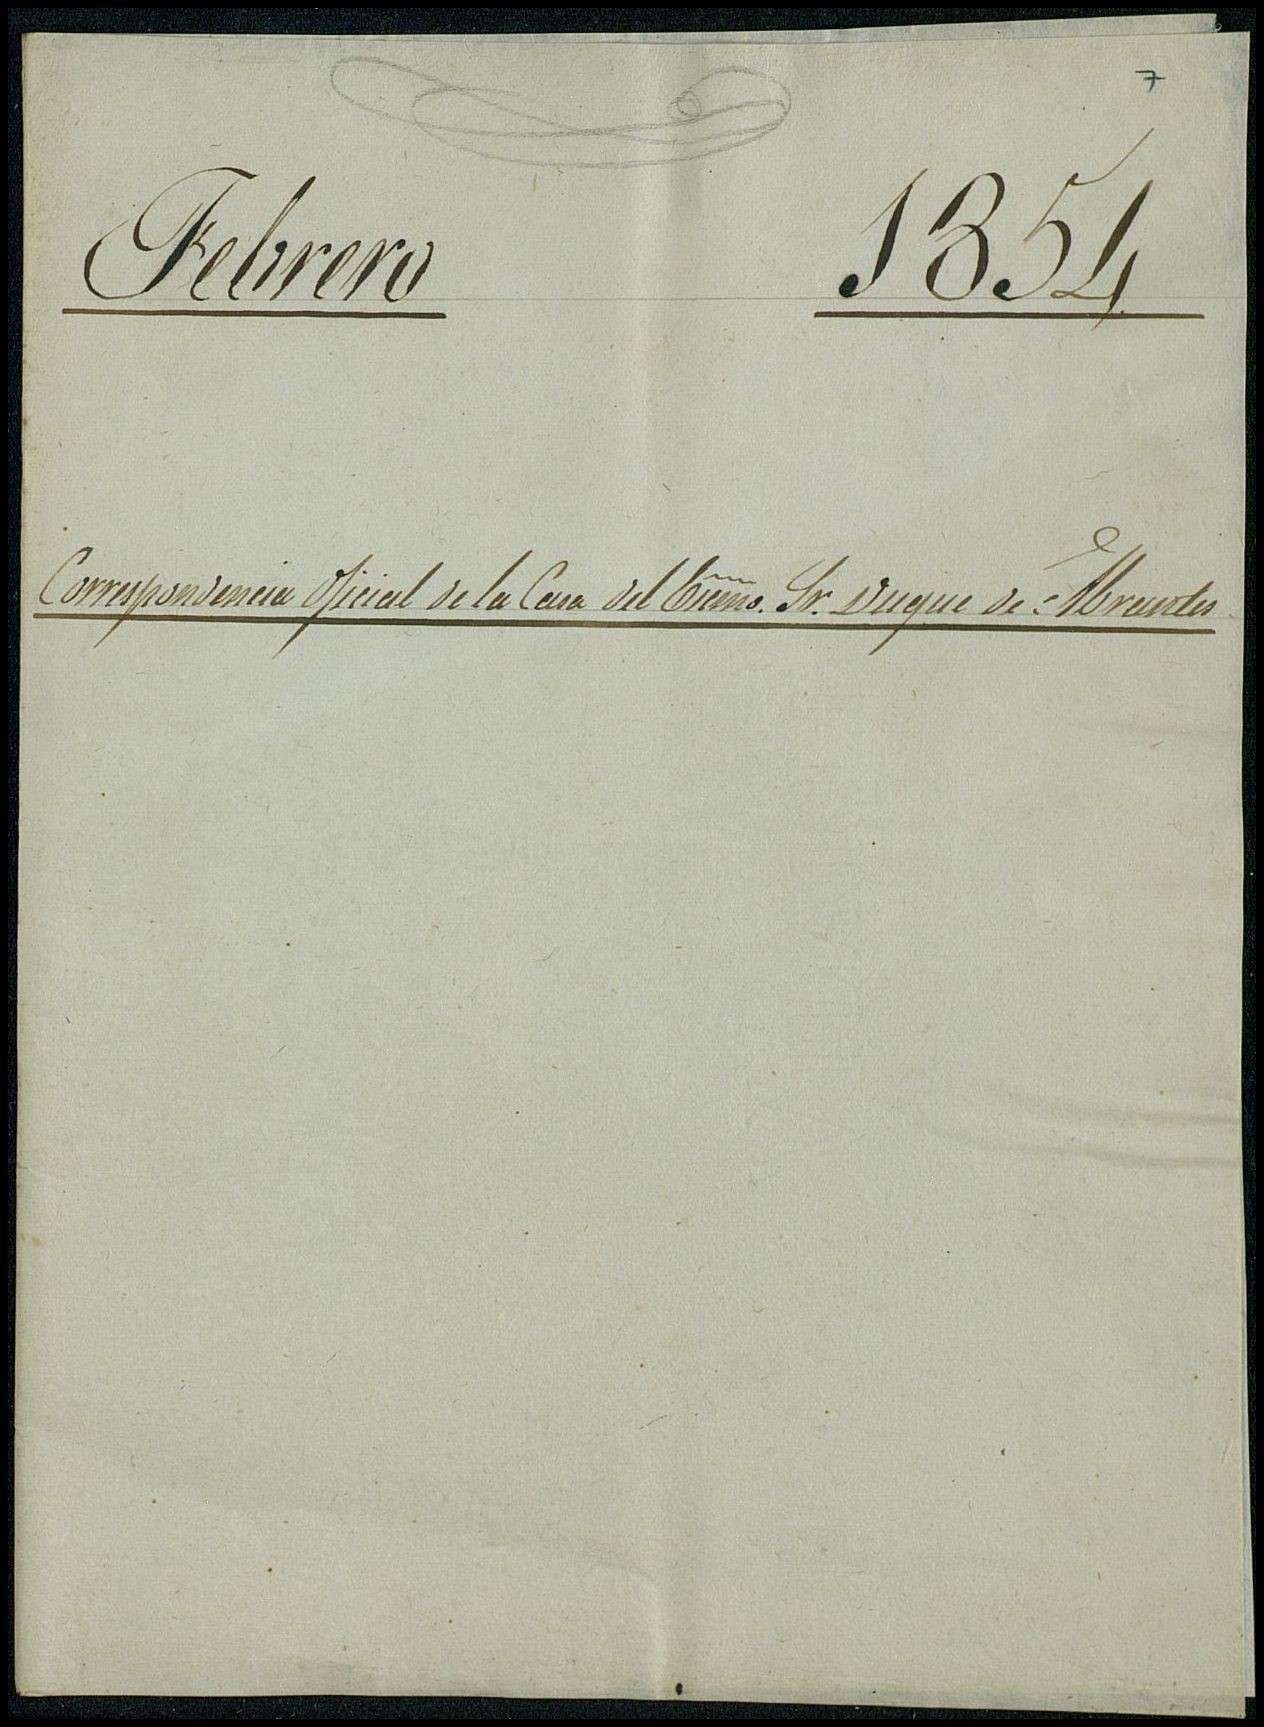 7
Febrero 1854
Correspondencia Oficial de la Casa del Excmo. Sr. Duque de Abrantes